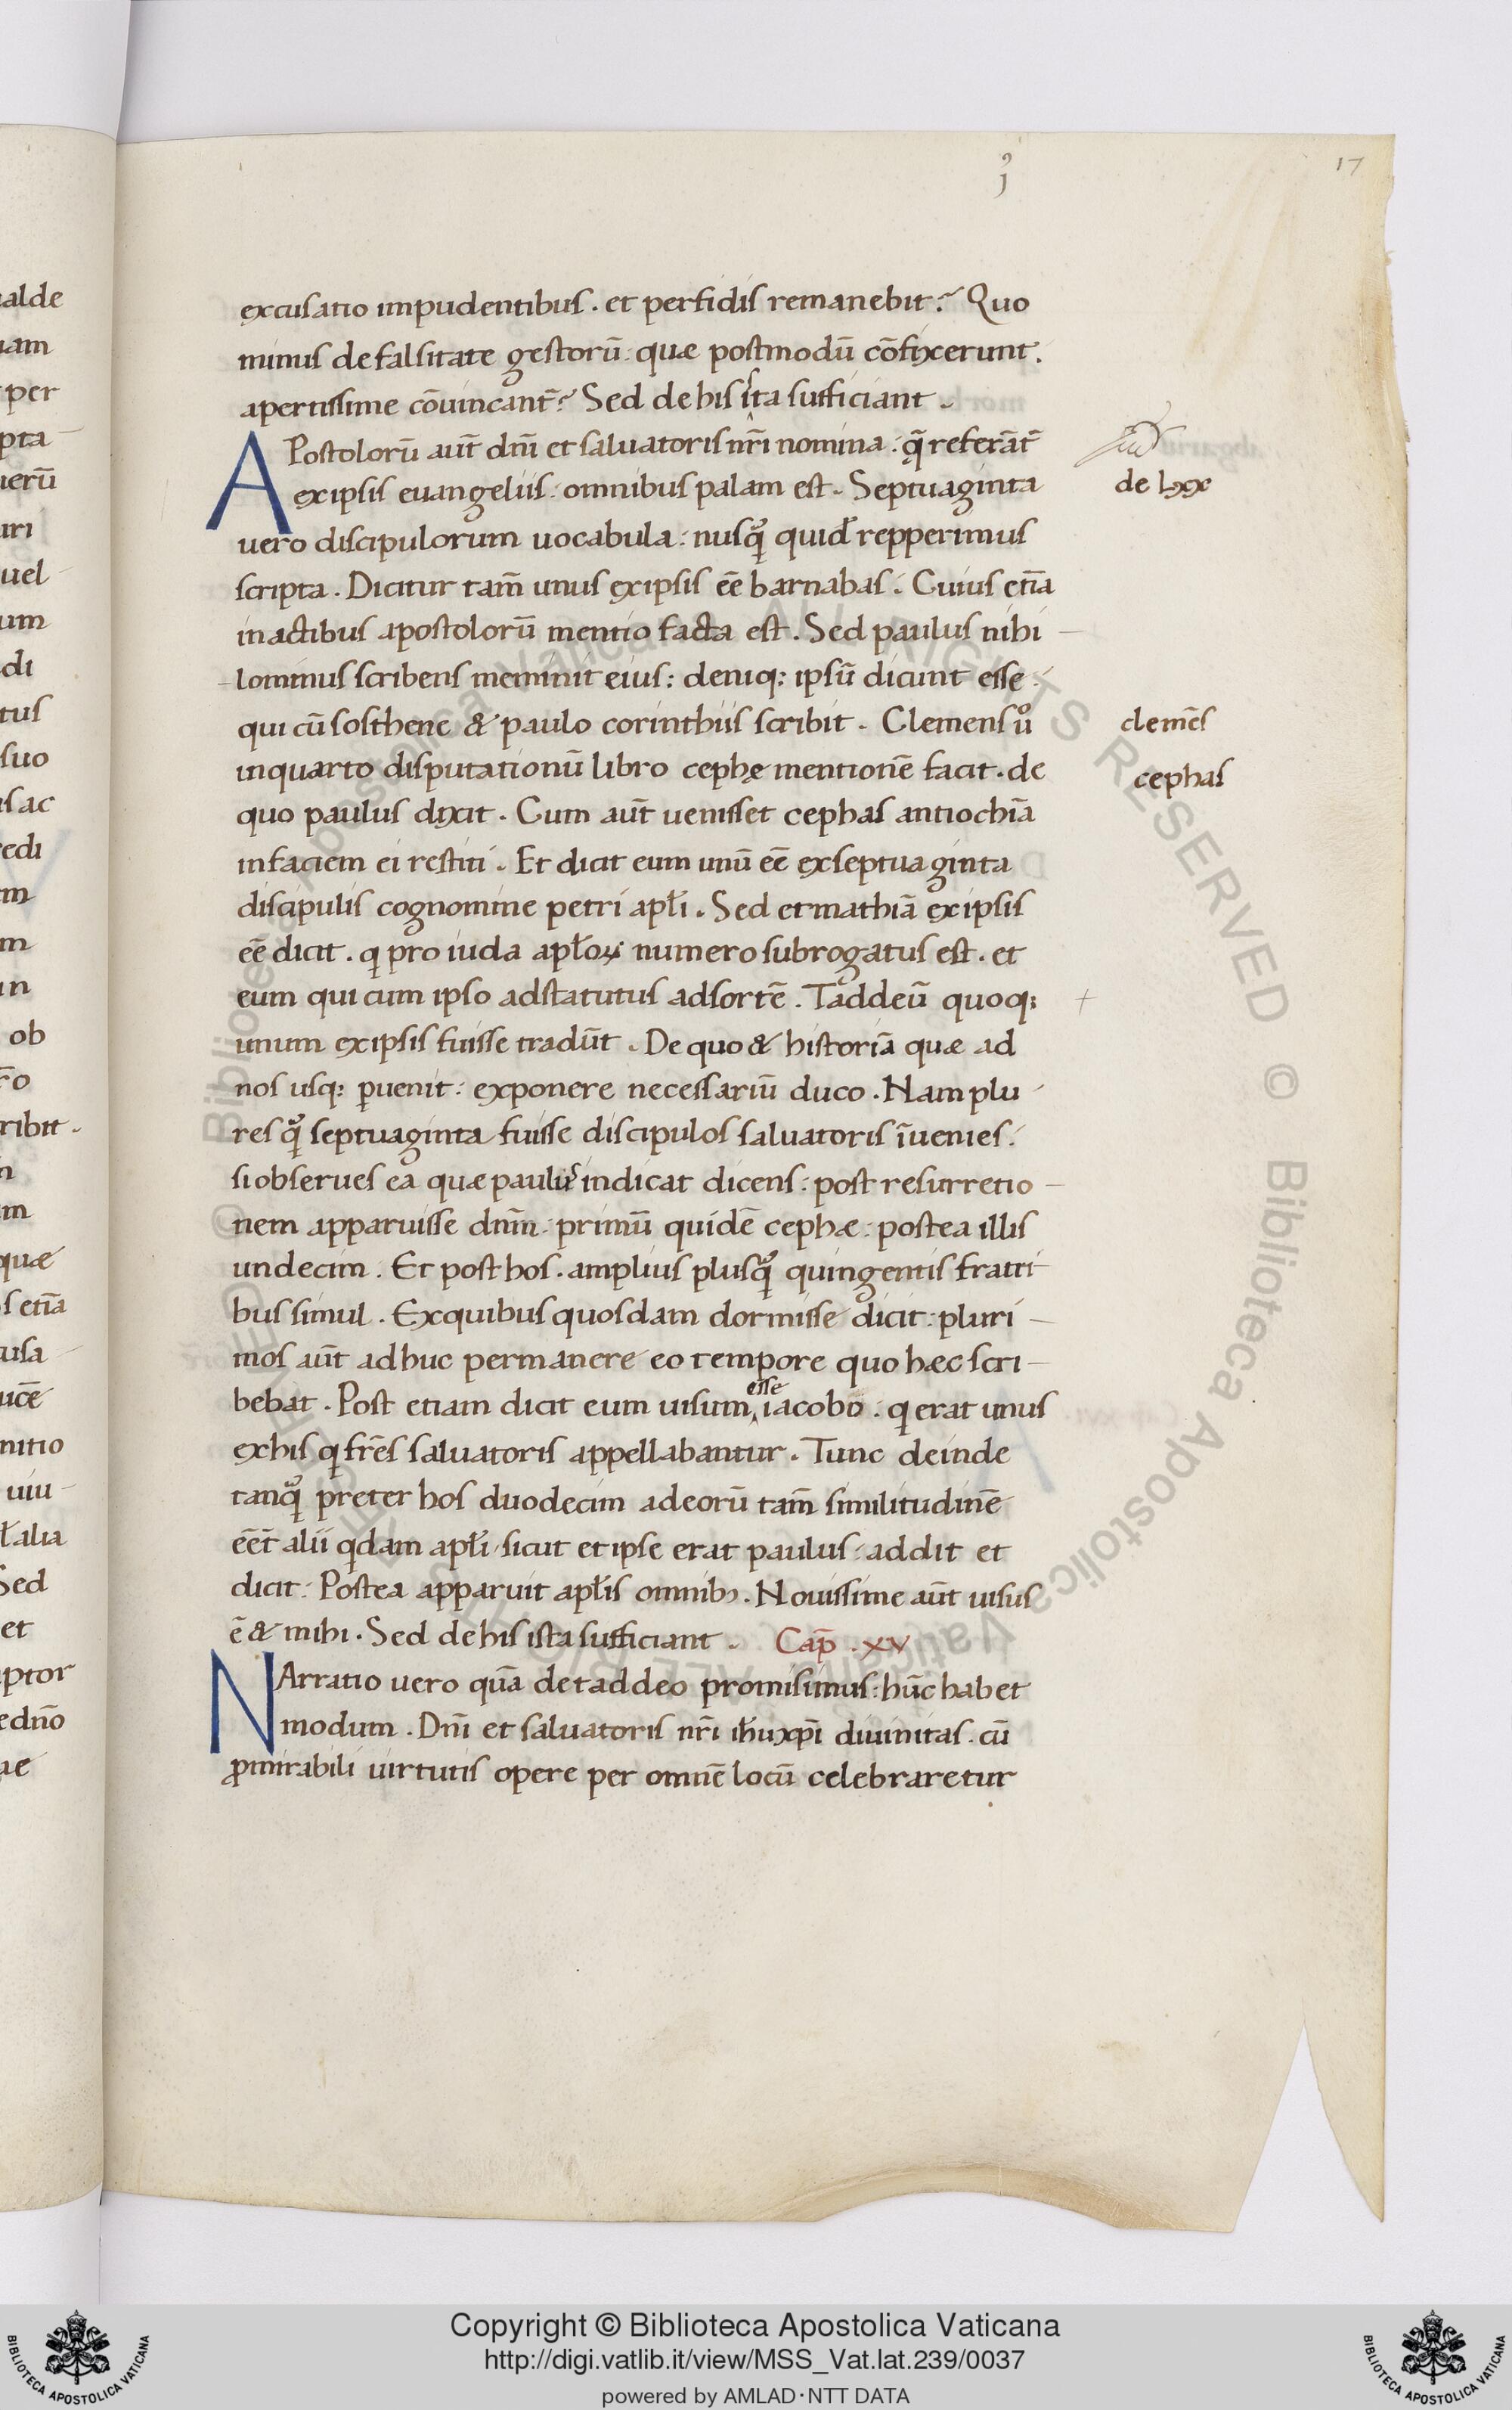 17
excusatio impudentibus. et perfidis remanebit? Quo
minus de falsitate gestorū: quæ postmodū cōfixcerunt.
apertissime cōuincant̄? Sed de his ista sufficiant.
APostolorū aut̄ dn̄i et saluatoris nr̄i nomina: q̄ referāt̄
ex ipsis euangeliis: omnibus palam est. Septuaginta
de lxx
uero discipulorum uocabula: nusq̊ quid̄ repperimus
scripta. Dicitur tam̄ unus ex ipsis eē barnabas. Cuius etiā
in actibus apostolorū mentio facta est. Sed paulus nihi-
lominus scribens meminit eius: deniq; ipsū dicunt esse.
qui cū sosthene & paulo corinthiis scribit. Clemens uͦ
clemēs
in quarto disputationū libro cephę mentionē facit. de
cephas
quo paulus dixit. Cum aut̄ uenisset cephas antiochiā
in faciem ei restiti. Et dicit eum unū eē ex septuaginta
discipulis cognomine petri apłi. Sed et mathiā ex ipsis
eē dicit. q pro iuda apłoꝝ numero subrogatus est. et
eum qui cum ipso adstatutus ad sortē. Taddeū quoq;
+
unum ex ipsis fuisse tradūt. De quo & historiā quæ ad
nos usq; ꝑuenit: exponere necessariū duco. Nam plu
res q̊ septuaginta fuisse discipulos saluatoris īuenies.
si obserues ea quæ paulus indicat dicens: post resurretio-
nem apparuisse dnm̄: primū quidē cephæ: postea illis
undecim. Et post hos. amplius plusq̊ quingentis fratri
bus simul. Ex quibus quosdam dormisse dicit: pluri-
mos aut̄ adhuc permanere eo tempore quo hæc scri-
bebat. Post etiam dicit eum uisum esse iacobo: q erat unus
ex his q fr̄es saluatoris appellabantur. Tunc deinde
tanq̊ preter hos duodecim ad eorū tam̄ similitudinē
eēt̄ alii qdam apłi. sicut et ipse erat paulus: addit et
dicit: Postea apparuit apłis omnibꝫ. Nouissime aut̄ uisus
ē & mihi. Sed de his ista sufficiant. Cap̄. xv
NArratio uero quā de taddeo promisimus: hūc habet
modum. Dn̄i et saluatoris nr̄i ih̄u xp̄i diuinitas. cū
ꝓ mirabili uirtutis opere per omnē locū celebraretur
Copyright © Biblioteca Apostolica Vaticana
http://digi.vatlib.it/view/MSS_Vat.lat.239/0037
powered by AMLAD·NTT DATA
BIBLIOTECA APOSTOLICA VATICANA
BIBLIOTECA APOSTOLICA VATICANA